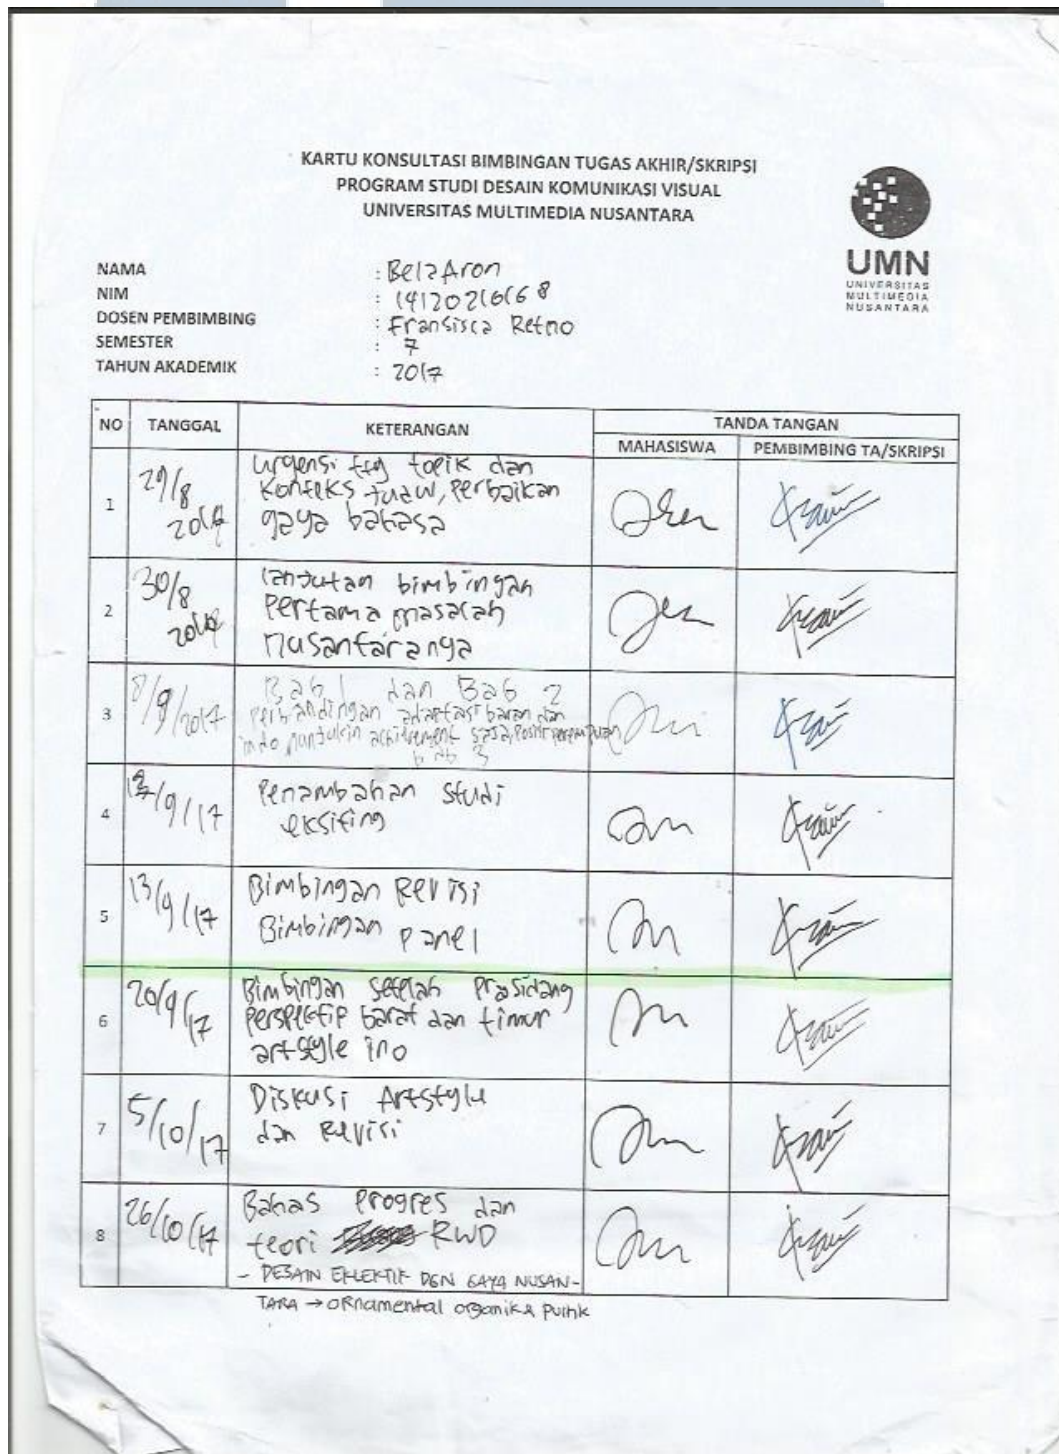 KARTU KONSULTASI BIMBINGAN TUGAS AKHIR/SKRIPSI
PROGRAM STUDI DESAIN KOMUNIKASI VISUAL
UNIVERSITAS MULTIMEDIA NUSANTARA
UMN
UNIVERSITAS
MULTIMEDIA
NUSANTARA
NAMA : Bela Aron
NIM : 14120216168
DOSEN PEMBIMBING : Fransisca Retno
SEMESTER : 7
TAHUN AKADEMIK : 2017
NO TANGGAL KETERANGAN TANDA TANGAN
MAHASISWA PEMBIMBING TA/SKRIPSI
1 29/8 2017 urgensi ttg topik dan
konteks, perbaikan
gaya bahasa
2 30/8 2017 lanjutan bimbingan
pertama masalah
nusantaranya
3 8/9/2017 Bab 1 dan Bab 2
perbandingan adaptasi barat dan
indo achievement saja, perempuan
bab 3
4 /9/17 Penambahan studi
eksiting
5 13/9/17 Bimbingan Revisi
Bimbingan panel
6 20/9/17 Bimbingan setelah prasidang
perspektif barat dan timur
artstyle ino
7 5/10/17 Diskusi Artstyle
dan Revisi
8 26/10/17 Bahas progres dan
teori RWD
- DESAIN EKLEKTIK DGN GAYA NUSAN-
TARA → ornamental organik &